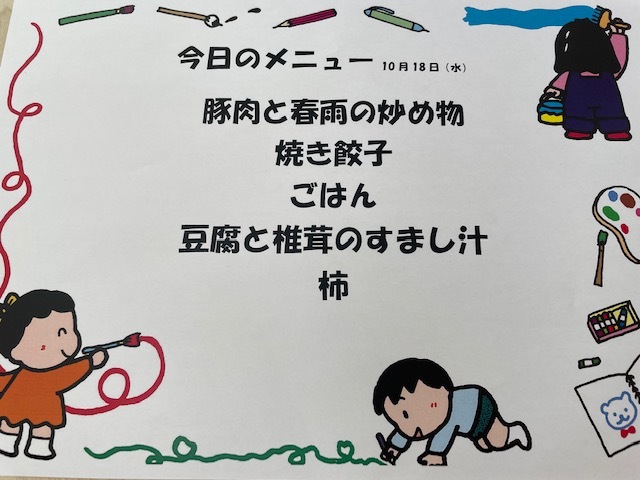 今日のメニュー 10月18日（水）
豚肉と春雨の炒め物
焼き餃子
ごはん
豆腐と椎茸のすまし汁
柿